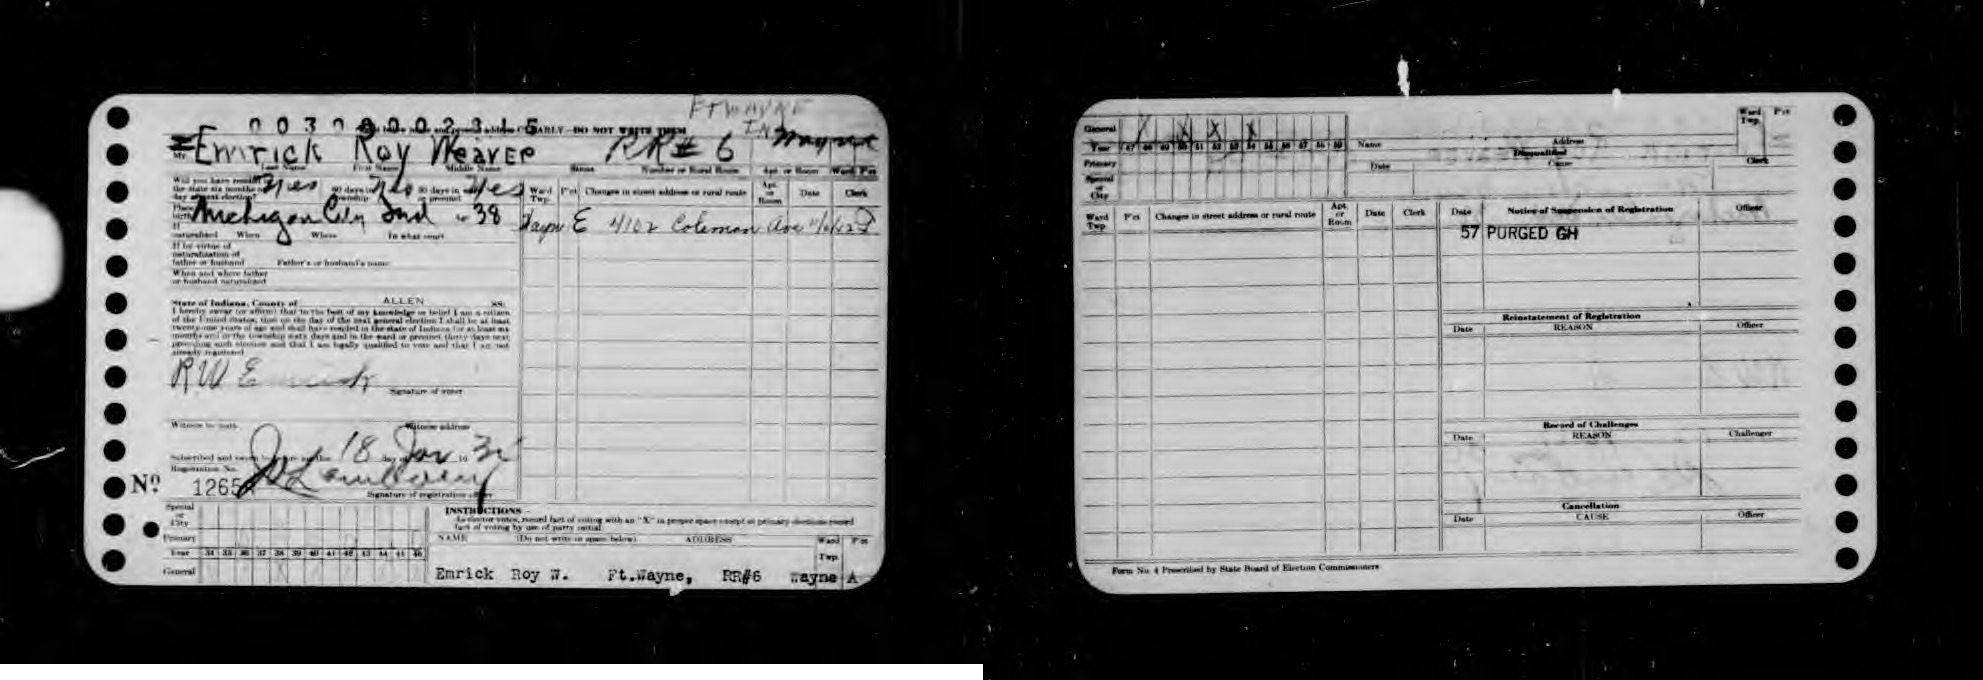 FT WAYNE
IND
00390002315
CLEARLY—DO NOT WRITE THEM
Emrick Roy Weaver RR# 6 Wayne
Mr.
Last Name First Name Middle Name Street Number or Rural Route Apt. or Room Ward Pct
Will you have resided in
the state six months on Yes 60 days in Yes 30 days in Yes
day of next election? township or precinct
Ward Twp. Pct Changes in street address or rural route Apt. or Room Date Clerk
Place
birth Michigan City Ind 38
Wayne E 4102 Coleman Ave
If
naturalized When Where In what court
If by virtue of
naturalization of
father or husband Father's or husband's name
When and where father
or husband naturalized
State of Indiana, County of ALLEN SS:
I hereby swear (or affirm) that to the best of my knowledge or belief I am a citizen
of the United States, that on the day of the next general election I shall be at least
twenty-one years of age and shall have resided in the state of Indiana for at least six
months and in the township sixty days and in the ward or precinct thirty days next
preceding such election and that I am legally qualified to vote and that I am not
already registered
R W Emrick
Signature of voter
Witness to mark Witness address
Subscribed and sworn before me this 18 day of
Registration No.
No 1265
Signature of registration officer
Special
or
City
Primary
Year 34 35 36 37 38 39 40 41 42 43 44 45 46
General
INSTRUCTIONS
As elector votes, record fact of voting with an "X" in proper space except at primary elections record
fact of voting by use of party initial.
NAME (Do not write in space below) ADDRESS Ward Twp. Pct
Emrick Roy W. Ft.Wayne, RR#6 Wayne A
General X X X X
Year 47 48 49 50 51 52 53 54 55 56 57 58 59
Primary
Special
or
City
Name Address Ward Twp. Pct
Disqualified
Date Cause Clerk
Ward Twp. Pct Changes in street address or rural route Apt. or Room Date Clerk
Date Notice of Suspension of Registration Officer
57 PURGED GH
Reinstatement of Registration
Date REASON Officer
Record of Challenges
Date REASON Challenger
Cancellation
Date CAUSE Officer
Form No. 4 Prescribed by State Board of Election Commissioners